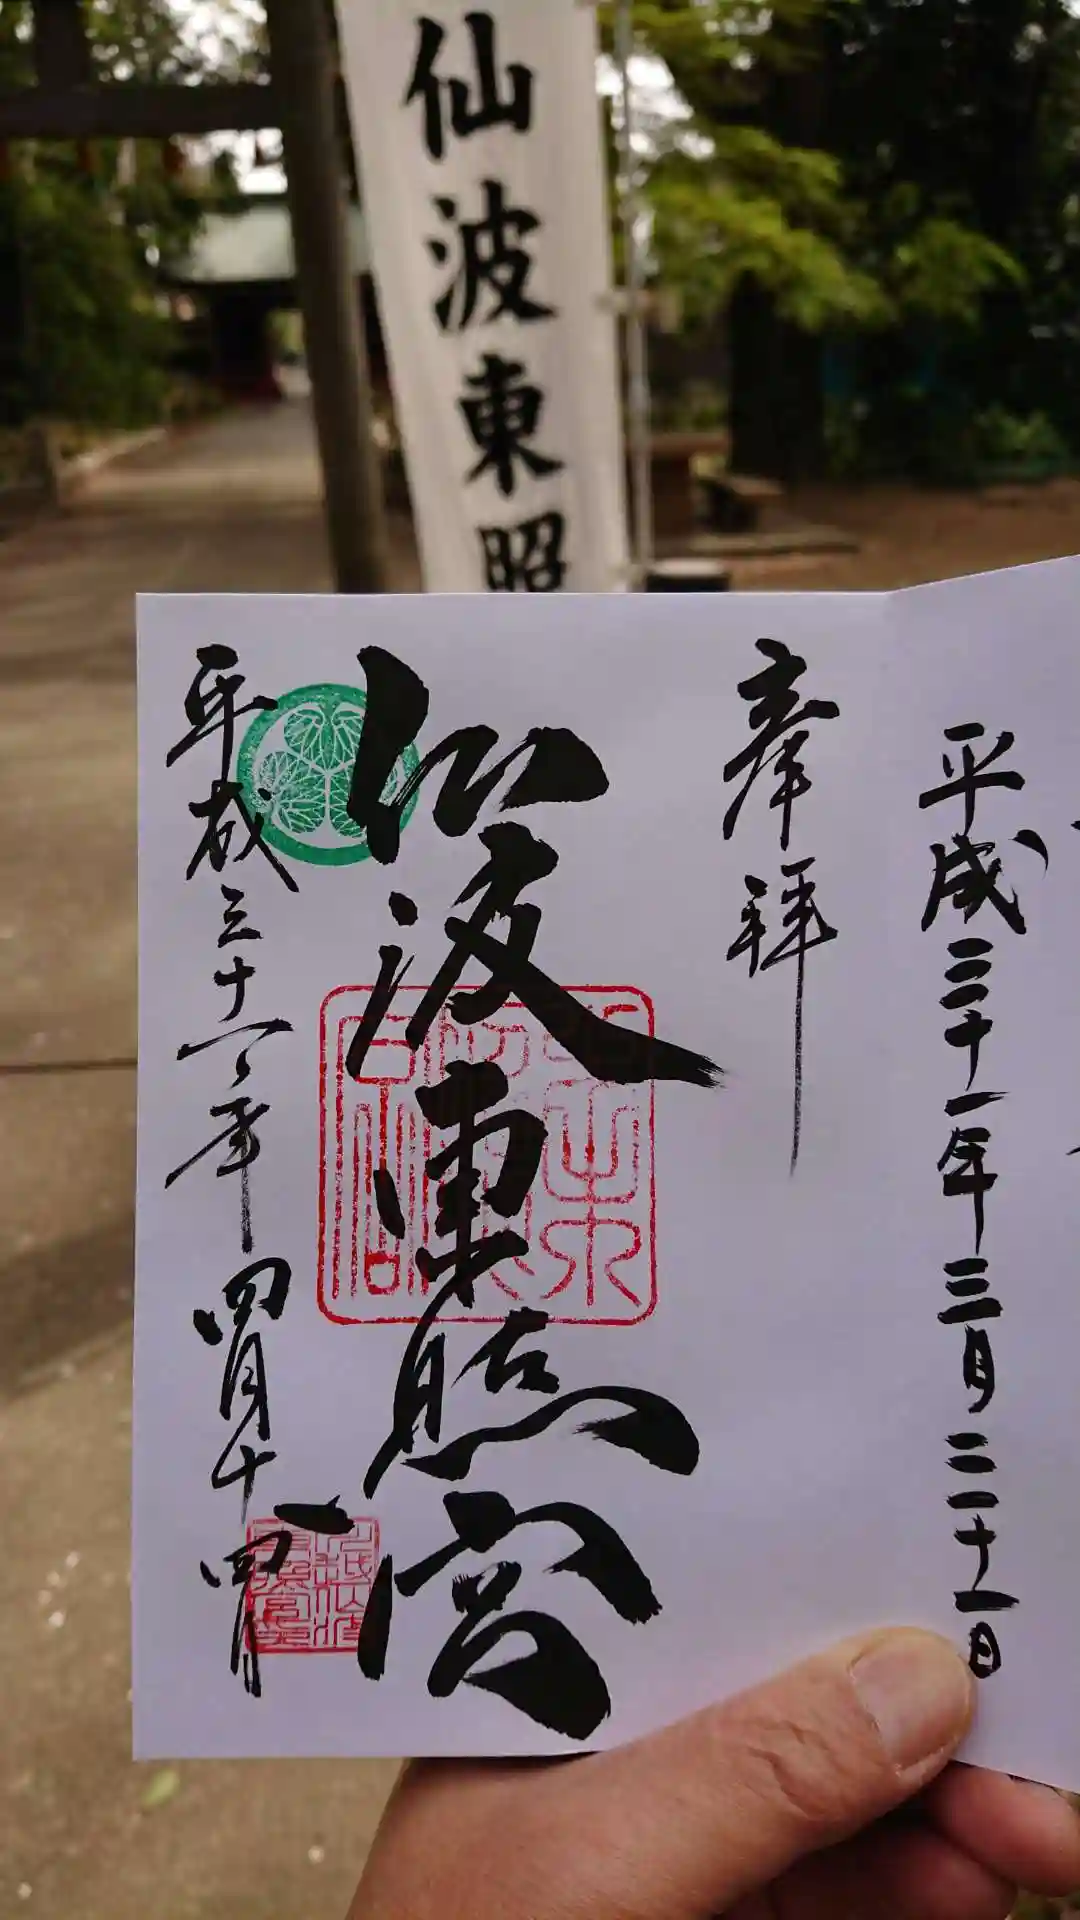 仙波東照
平成三十一年三月二十一日
奉拝
仙波東照宮
平成三十一年四月十四日